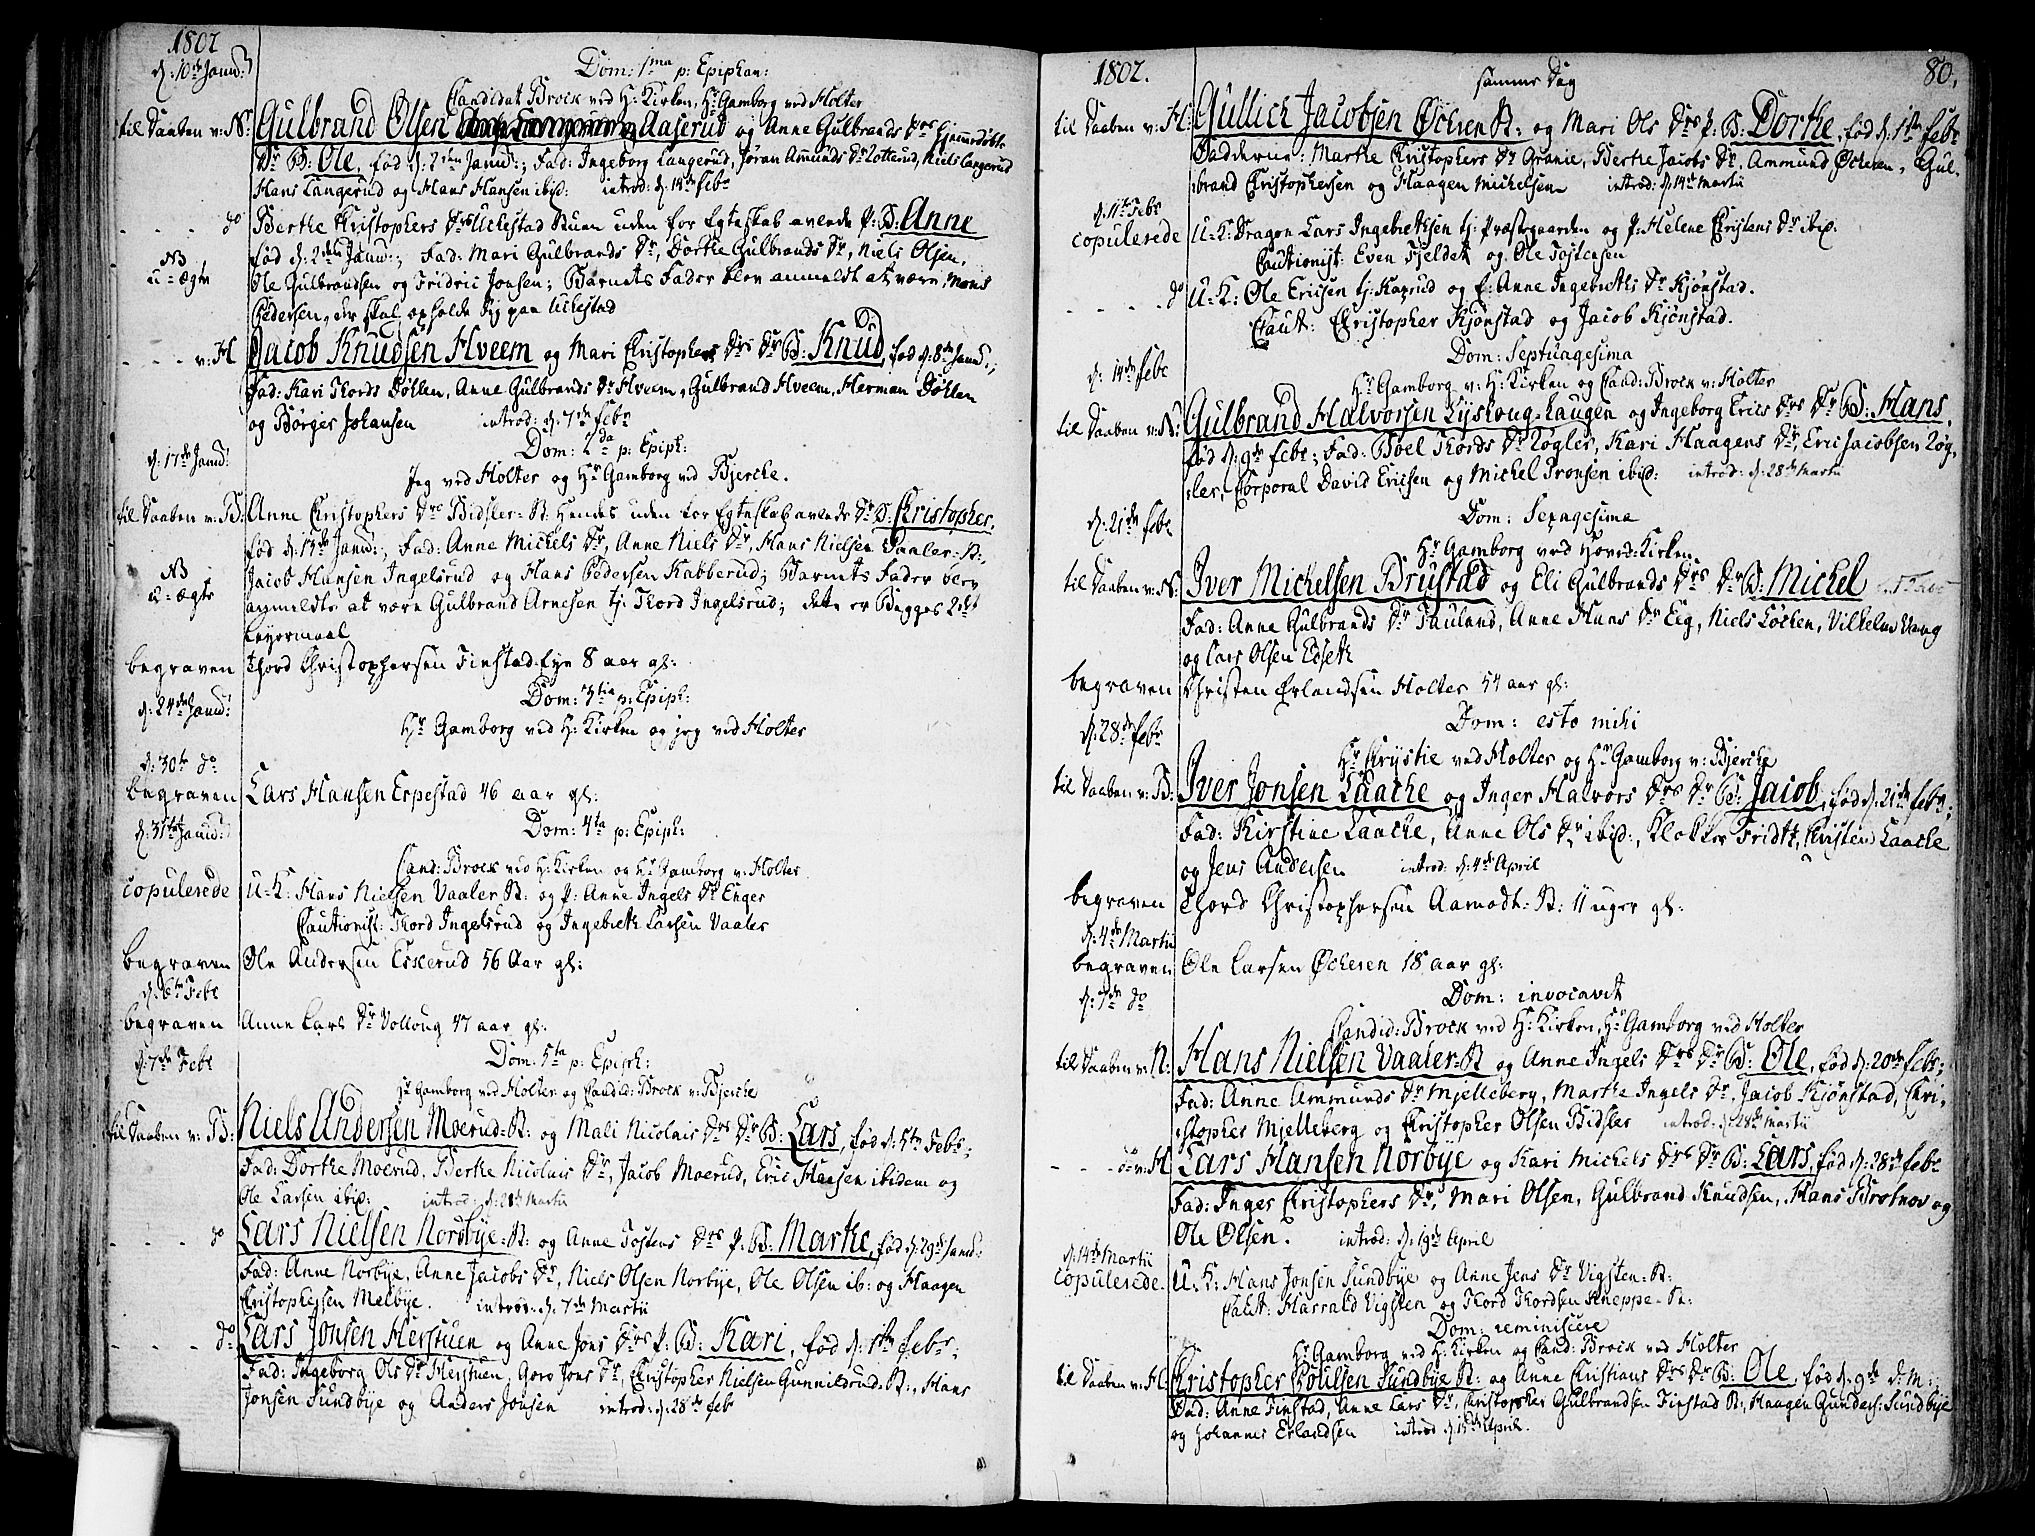 1802
d: 10de Janu:
Dom: 1ma p: Epiphan:
Candidat Brock ved H: Kirken, Hr Gamborg ved Holter
til Daaben v: N: Gulbrand Olsen Aaserud og Anne Gulbrands Drs
Dr B: Ole, fød d: 2den Janu:; Fad: Ingeborg Langerud, Jøran Amunds Dr Votterud, Niels Langerud
Hans Langerud og Hans Hansen ibid: introd: d: 14de Febr
do Berthe Christophers Drs Uchestad Stuen uden for Egteskab avlede P: B: Anne
NB fød d: 2den Janu:; Fad: Mari Gulbrands Dr, Dorthe Gulbrands Dr, Niels Olsen,
u-ægte Ole Gulbrandsen og Fridric Jonsen; Barnets Fader blev anmeldt at være Mons
Pedersen, der skal opholde sig paa Uchestad
v: H Jacob Knudsen Hveem og Mari Christophers Drs Dr B: Knud, fød d: 8de Janu:;
Fad: Kari Thords Døhlen, Anne Gulbrands Dr Hveem, Gulbrand Hveem, Herman Døhlen
og Børger Johansen introd: d: 7de Febr
d: 17de Janu: Dom: 2da p: Epiph:
Jeg ved Holter og Hr Gamborg ved Bjercke.
til Daaben v: B: Anne Christophers Drs Bidsler-St: Hendes uden for Egteskab avlede Dr B: Christopher,
fød d: 15de Janu:, Fad: Anne Michels Dr, Anne Niels Dr, Hans Nielsen Vaaler-St:,
NB Jacob Hansen Ingelsrud og Hans Pedersen Kabberud; Barnets Fader blev
u-ægte anmeldte at være Gulbrand Arnesen tj: Thord Ingelsrud; dette er Begges 2det
Leyermaal
begraven Thord Christophersen Finstad-Eye 8 aar gl:
d: 24de Janu: Dom: 3tia p: Epiph:
Hr Gamborg ved H: Kirken og jeg ved Holter
d: 30te do
begraven Lars Hansen Erpestad 46 aar gl:
d: 31te Janu: Dom: 4ta p: Epiph:
Cand: Brock ved H: Kirken og Hr Gamborg v: Holter
copulerede U: K: Hans Nielsen Vaaler St: og P: Anne Ingels Dr Enger
Cautionist: Thord Ingelsrud og Ingebreth Larsen Vaaler
begraven Ole Andersen Eskerud 56 Aar gl:
d: 6te Febr
begraven Anne Lars Dr Volloug 47 aar gl:
d: 7de Febr Dom: 5ta p: Epiph:
Hr Gamborg ved Holter og Candid: Brock v: Bjercke
til Daaben v: B: Niels Andersen Moerud-St: og Mali Nicolais Drs Dr B: Lars, fød d: 5te Febr;
Fad: Dorthe Moerud, Berthe Nicolais Dr, Jacob Moerud, Eric Hansen ibidem og
Ole Larsen ibid: introd: d: 28de Martii
do Lars Nielsen Nordbye-St: og Anne Tostens Drs P: B: Marthe, fød d: 29de Janu:
Fad: Anne Norbye, Anne Jacobs Dr, Niels Olsen Norbye, Ole Olsen ib: og Haagen
Christophersen Melbye. introd: d: 7de Martii
do Lars Jonsen Herstuen og Anne Jons Drs P: B: Kari, fød d: 1ste Febr;
Fad: Ingeborg Ols Dr Herstuen, Goro Jons Dr, Christopher Nielsen Gunnildrud-St:, Hans
Jonsen Sundbye og Anders Jonsen introd: d: 28de Febr
1802. samme Dag 80.
til Daaben v: H: Gullich Jacobsen Ocheren St: og Mari Ols Drs P: B: Dorthe, fød d: 1ste Febr
Fadderne: Marthe Christophers Dr Granie, Berthe Jacobs Dr, Ammund Ocheren, Gul-
brand Christophersen og Haagen Michelsen introd: d: 14de Martii
d: 11te Febr
copulerede U: K: Dragon Lars Ingebrethsen tj: Præstegaarden og P: Helene Christens Dr ibid.
Cautionist: Even Fjeldet og Ole Tostensen
do U: K: Ole Ericsen tj: Kaxrud og E: Anne Ingebreths Dr Kjønstad.
Caut: Christopher Kjønstad og Jacob Kjønstad.
d: 14de Febr Dom: Septuagesima
Hr Gamborg v: H: Kirken og Cand: Brock v: Holter
til Daaben v: N: Gulbrand Halvorsen Lyskoug-Haugen og Ingeborg Erics Drs Dr B: Hans,
fød d: 9de Febr; Fad: Boel Thords Dr Løgler, Kari Haagens Dr, Eric Jacobsen Løg-
ler, Corporal David Ericsen og Michel Tronsen ibid: introd: d: 28de Martii
d: 21de Febr Dom: Sexagesima
Hr Gamborg ved Hoved-Kirken
til Daaben v: N: Iver Michelsen Brustad og Eli Gulbrands Drs Dr B: Michel
Fad: Anne Gulbrands Dr Tauland, Anne Hans Dr Eig, Niels Løchen, Vilhelm Vang
og Lars Olsen Edseth
begraven Christen Erlandsen Holter 54 aar gl:
d: 28de Febr Dom: esto mihi
Hr Krystie ved Holter og Hr Gamborg v: Bjercke
til Daaben v: B: Iver Jonsen Laache og Inger Halvors Drs Dr B: Jacob, fød d: 21de Febr;
Fad: Kirstine Laache, Anne Ols Dr ibid:, Klokker Fridtz, Christen Laache
og Jens Andersen introd: d: 4de April
begraven Thord Christophersen Aamodt-St: 11 uger gl:
d: 4de Martii
begraven Ole Larsen Ocheren 18 aar gl:
d: 7de do Dom: invocavit
Candid: Brock ved H: Kirken, Hr Gamborg ved Holter
til Daaben v: N: Hans Nielsen Vaaler-St og Anne Ingels Drs Dr B: Ole, fød d: 20de Febr;
Fad: Anne Ammunds Dr Mjelleberg, Marthe Ingels Dr, Jacob Kjønstad, Chri-
stopher Mjelleberg og Christopher Olsen Bidsler introd: d: 28de Martii
do v: H Lars Hansen Norbye og Kari Michels Drs Dr B: Lars, fød d: 28de Febr
Fad: Inger Christophers Dr, Mari Olsen, Gulbrand Knudsen, Hans Brotnov og
Ole Olsen. introd: d: 19de April
d: 14de Martii
copulerede U: K: Hans Jonsen Sundbye og Anne Jens Dr Vigsten-St:
Caut: Harrald Vigsten og Thord Thordsen Kneppe-St:
Dom: reminiscere
Hr Gamborg ved H: Kirken og Cand: Brock ved Holter
til Daaben v: H: Christopher Poulsen Sundbye St: og Anne Christians Drs Dr B: Ole, fød d: 9de d: M:;
Fad: Anne Finstad, Anne Lars Dr, Christopher Gulbrandsen Finstad St:, Haagen Gunders: Sundbye
og Johannes Erlandsen introd d: 15de April.